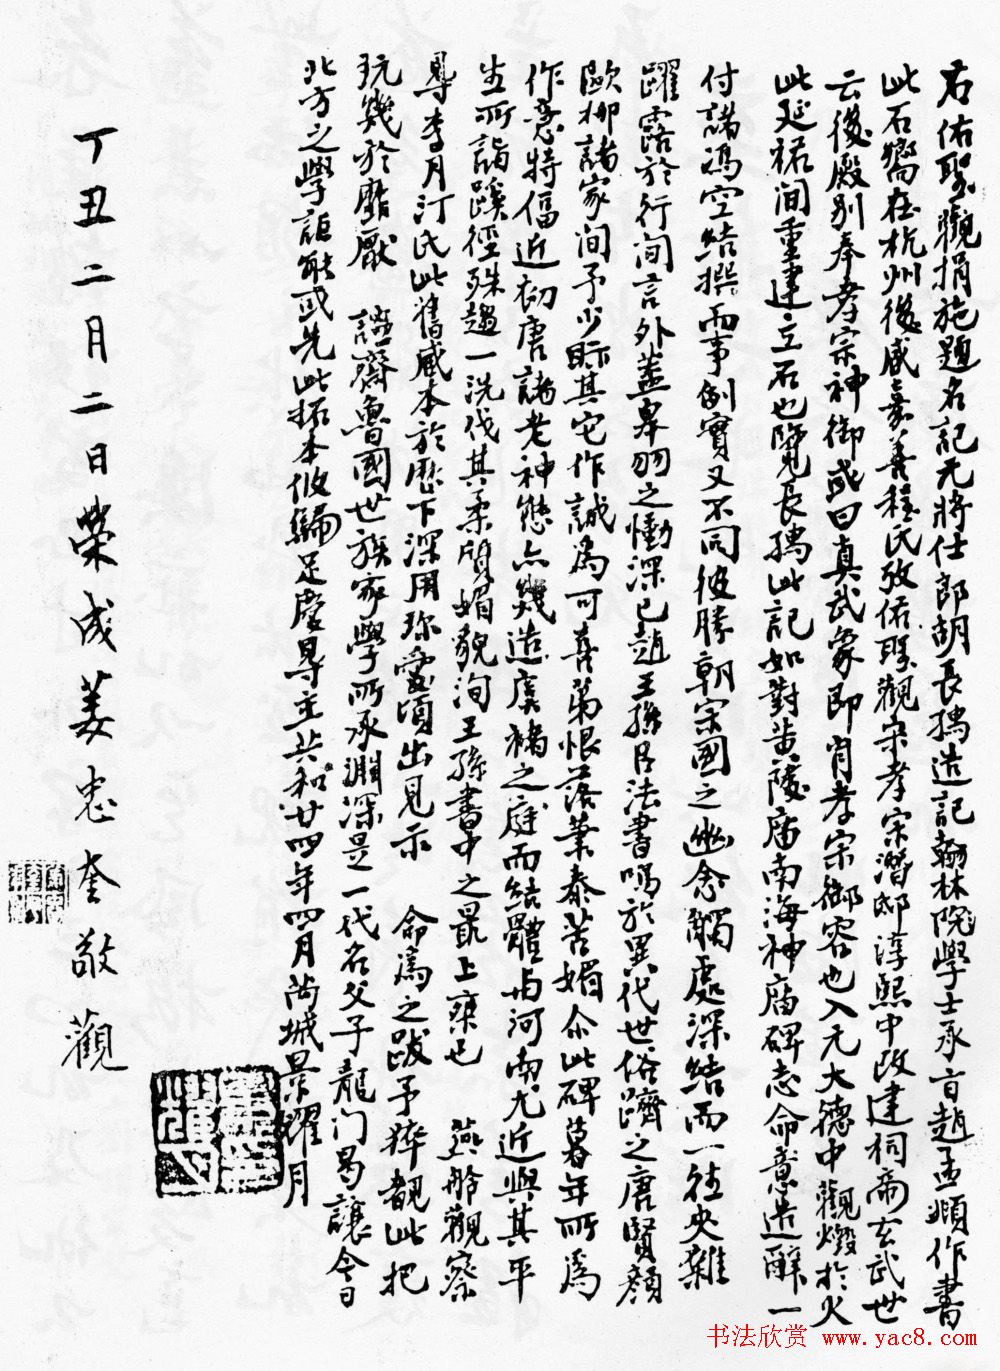 右佑聖觀捐施題名記元將仕郎胡長孺造記翰林院學士承旨趙孟頫作書
此石嚮在杭州後咸嘉善程氏攷佑聖觀宋孝宗潛邸淳熙中改建祠而玄武世
云後殿別奉孝宗神御或曰真武象即肖孝宗御容也入元大德中觀燬於火
此延祐間重建立石也覽長孺此記如對黃陵廟南海神廟碑志命意造辭一
付諸馮空結撰而事例實又不同彼勝朝宗國之幽念觸處深結而一往央難
躍露於行間言外蓋皋羽之慟深已趙王孫以法書鳴於異代世俗躋之唐賢顏
歐柳諸家間予少眎其它作誠為可喜弟恨落筆泰苦媚余此碑暮年所為
作意特偪近初唐諸老神態亦幾造虞褚之庭而結體与河南尤近與其平
生所詣蹊徑殊趨一洗伐其柔閒媚貌洵王孫書中之最上椉已 燕舲觀察
尋李月汀氏此舊臧本於歷下深用珍愛頃出見示 命為之跋予猝覩此把
玩幾於饜厭 諡齋魯國世族家學所承淵深是一代名父子龍門曷讓今日
北方之學詎能或先此拓本攸歸足慶尋主共和廿四年四月芮城景耀月
丁丑二月二日榮成姜忠奎敬觀
书法欣赏 www.yac8.com